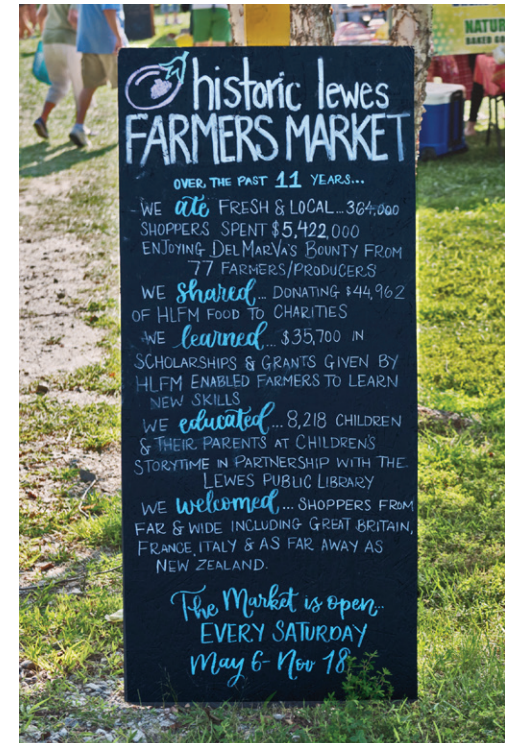 NATUR
BAKED GO
historic lewes
FARMERS MARKET
OVER THE PAST 11 YEARS...
WE ate FRESH & LOCAL...364,000
SHOPPERS SPENT $5,422,000
ENJOYING DELMARVA'S BOUNTY FROM
77 FARMERS/PRODUCERS
WE shared... DONATING $44,962
OF HLFM FOOD TO CHARITIES
WE learned... $35,700 IN
SCHOLARSHIPS & GRANTS GIVEN BY
HLFM ENABLED FARMERS TO LEARN
NEW SKILLS
WE educated... 8,218 CHILDREN
& THEIR PARENTS AT CHILDREN'S
STORYTIME IN PARTNERSHIP WITH THE
LEWES PUBLIC LIBRARY
WE welcomed... SHOPPERS FROM
FAR & WIDE INCLUDING GREAT BRITAIN,
FRANCE, ITALY & AS FAR AWAY AS
NEW ZEALAND.
The Market is open...
EVERY SATURDAY
May 6 - Nov 18